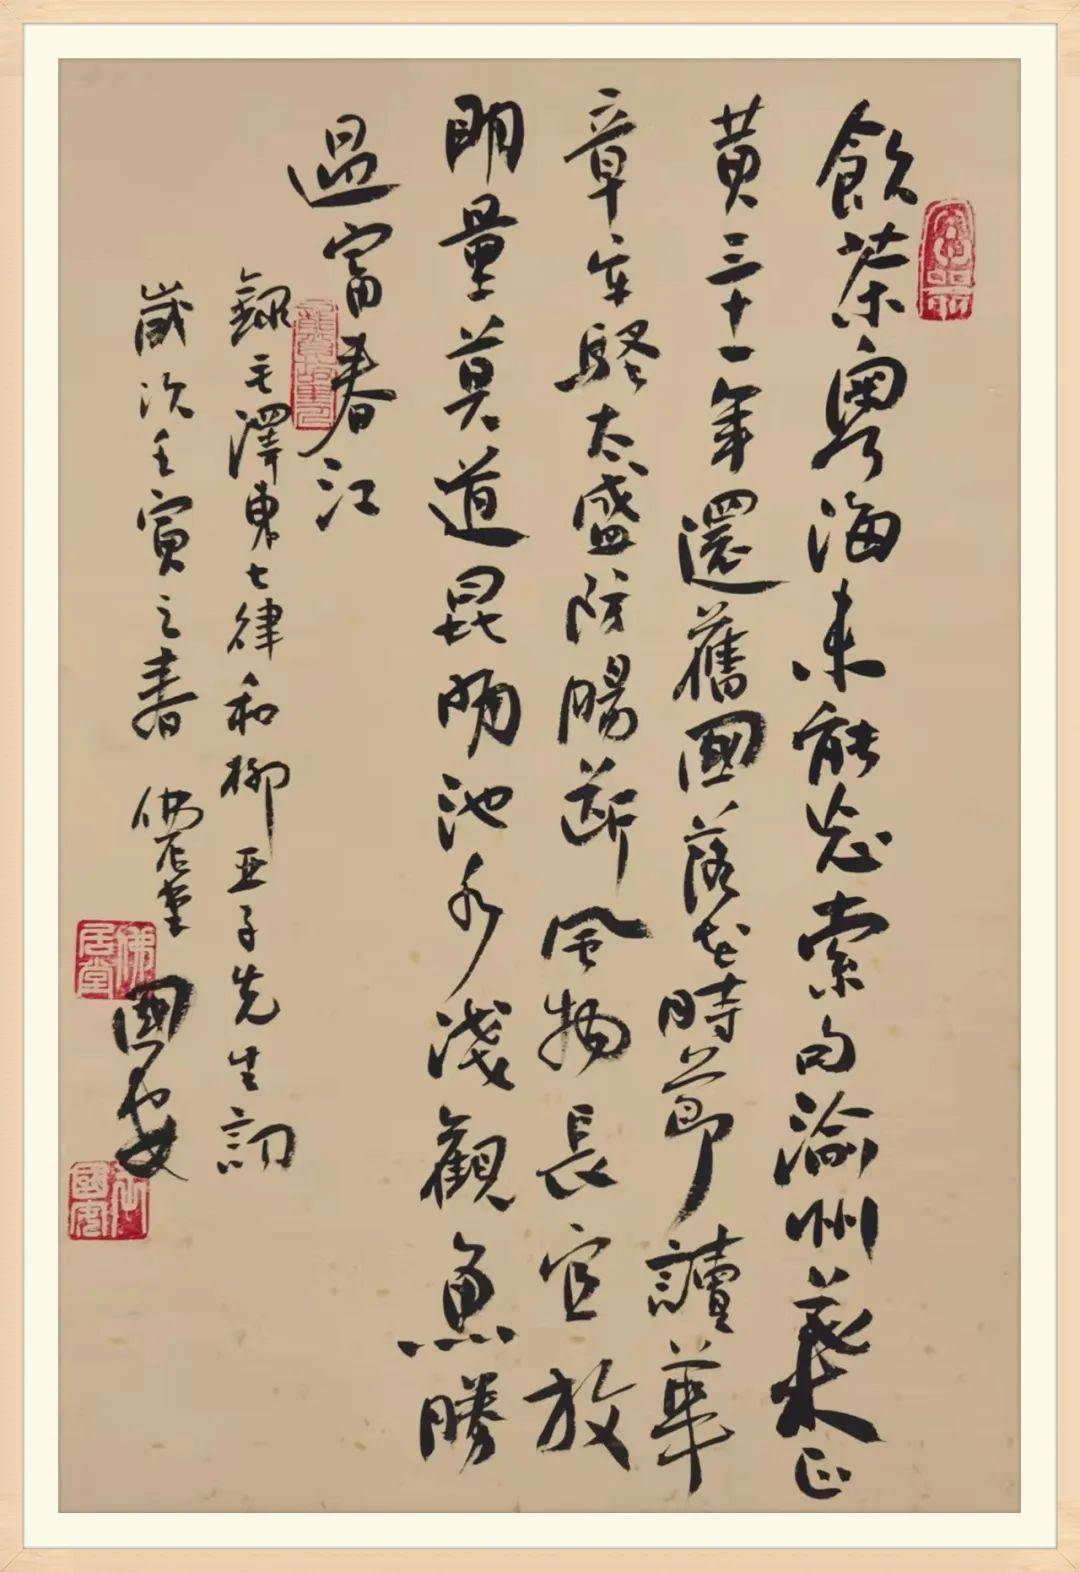 飲茶粵海未能忘索句渝州葉正
黃三十一年還舊國落花時節讀華
章牢騷太盛防腸斷風物長宜放
眼量莫道昆明池水淺觀魚勝
過富春江
錄毛澤東七律和柳亞子先生詞
歲次壬寅之春 佛居堂 國安
佛居堂